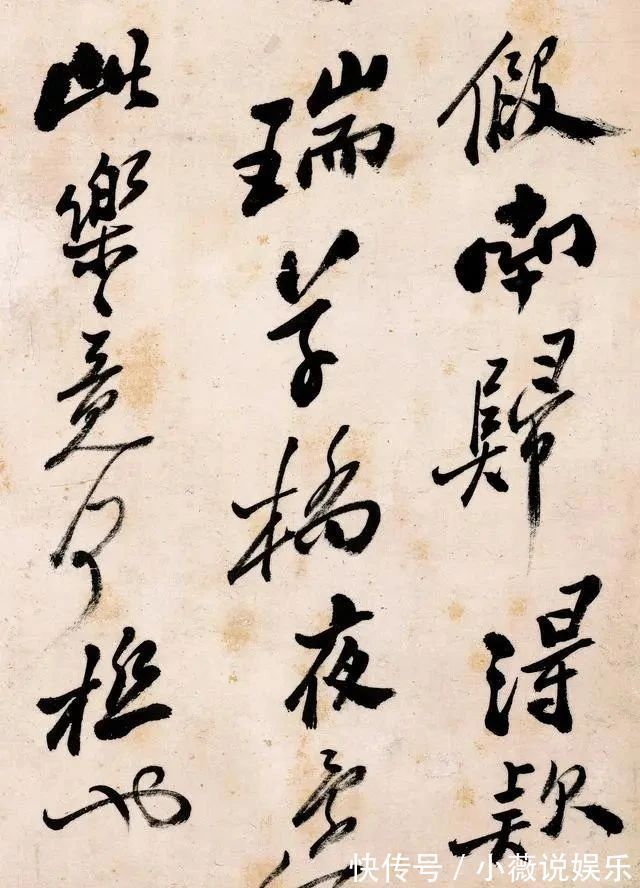 假南歸得款
瑞草橋夜還
此樂竟何極也
快传号/小薇说娱乐